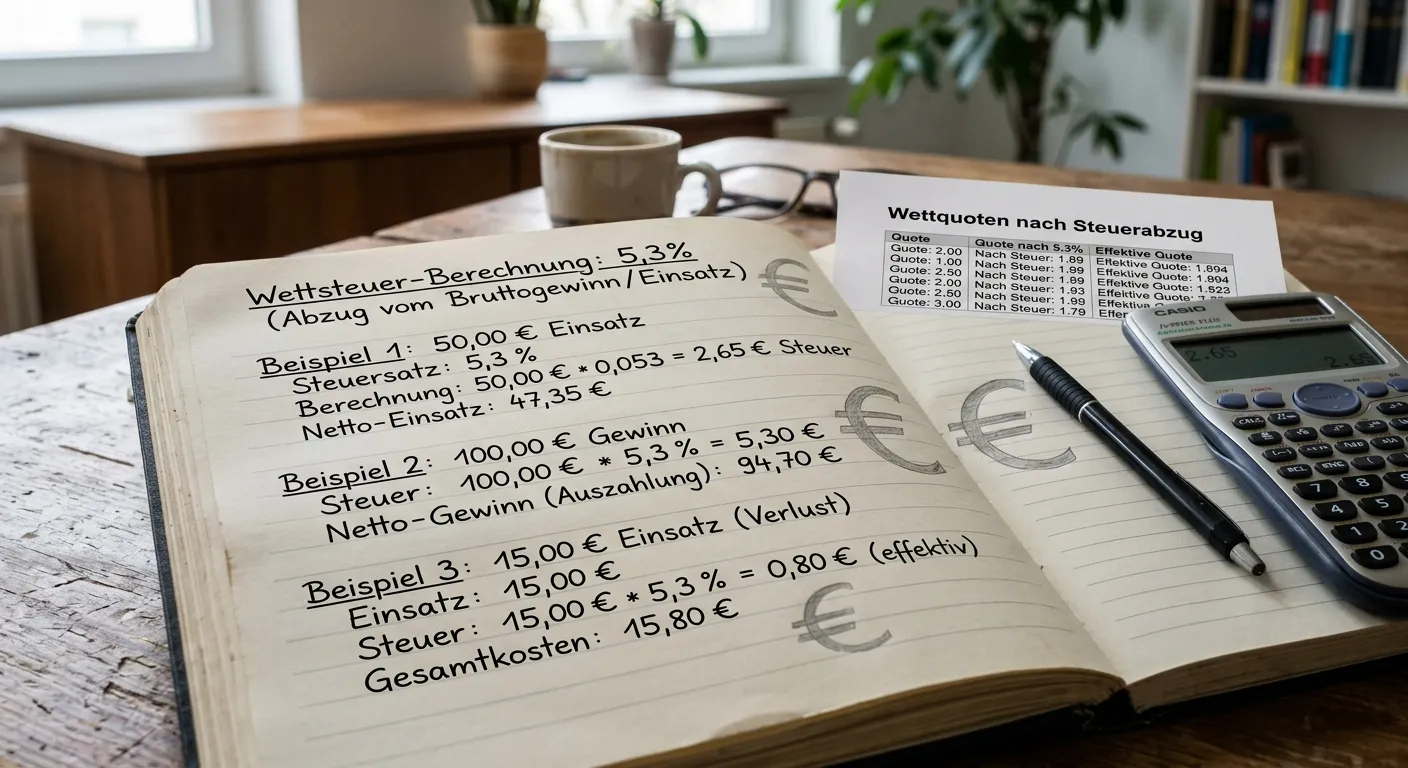 Wettsteuer-Berechnung: 5,3%
(Abzug vom Bruttogewinn/Einsatz)
Beispiel 1: 50,00 € Einsatz
Steuersatz: 5,3 %
Berechnung: 50,00 € * 0,053 = 2,65 € Steuer
Netto-Einsatz: 47,35 €
Beispiel 2: 100,00 € Gewinn
Steuer: 100,00 € * 5,3 % = 5,30 €
Netto-Gewinn (Auszahlung): 94,70 €
Beispiel 3: 15,00 € Einsatz (Verlust)
Einsatz: 15,00 €
Steuer: 15,00 € * 5,3 % = 0,80 € (effektiv)
Gesamtkosten: 15,80 €
€
€
€
€
Wettquoten nach Steuerabzug
Quote Quote nach 5.3% Effektive Quote
Guote: 2.00 Nach Steuer: 1.89 Effektive Quote: 1.894
Quote: 1.00 Nach Steuer: 1.99 Effektive Quote: 1.894
Quote: 2.50 Nach Steuer: 1.99 Effektive Quote: 1.523
Quote: 2.00 Nach Steuer: 1.93 Effektive Quote:
Guote: 2.50 Nach Steuer: 1.99 Effektive
Guote: 3.00 Nach Steuer: 1.79
CASIO
2.65
2.65
7 8
4 5
1 2
0